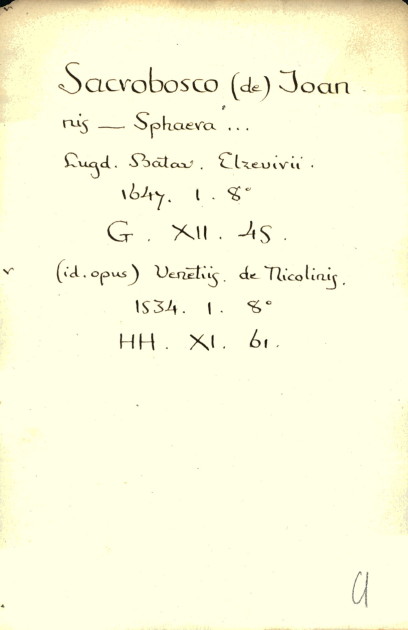 Sacrobosco (de) Joan
nis — Sphaera ...
Lugd. Batav. Elzevirii.
1647. 1. 8°
G. XII. 45.
v (id. opus) Venetiis. de Nicolinis.
1534. 1. 8°
HH. XI. 61.